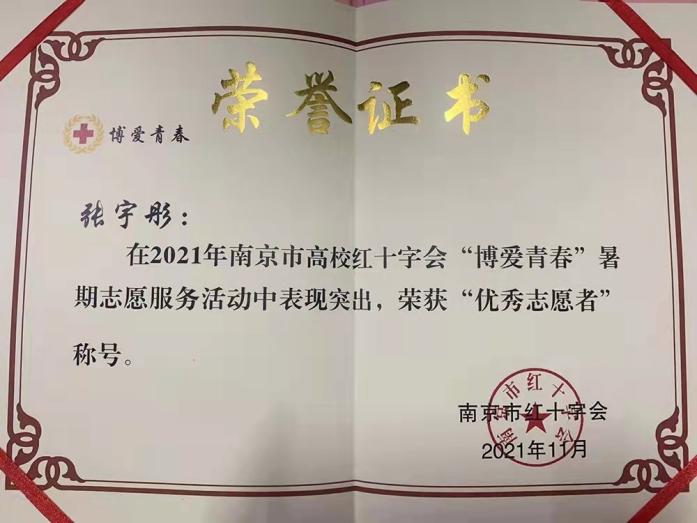 荣誉证书
博爱青春
张宇彤：
在2021年南京市高校红十字会“博爱青春”暑
期志愿服务活动中表现突出，荣获“优秀志愿者”
称号。
南京市红十字会
南京市红十字会
2021年11月